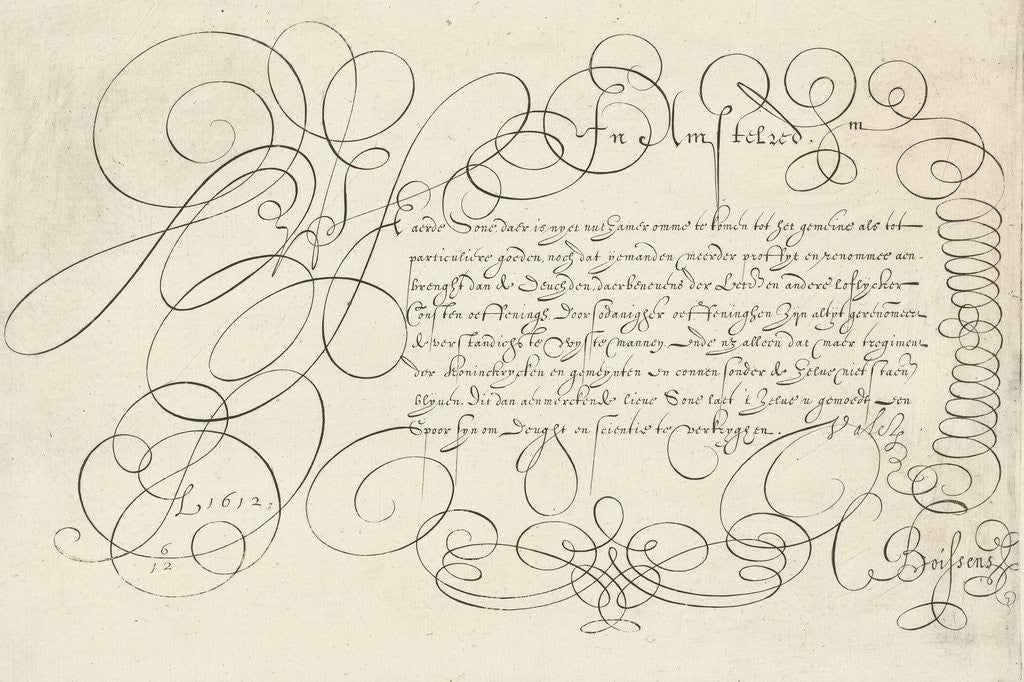 In Amstelred.m
Waerde Sone, daer is nyet nutzamer omme te komen tot het gemeine als tot
particuliere goeden, noch dat yemanden meerder proffyt en renommee aen-
brenght dan de Deuchden, daerbenevens der Letteren andere loflycker
Consten oeffenings. Door sodanigher oeffeninghen zyn altyt gerenomeert
de verstandichste wyste mannen. Ende nz alleen dat maer tregiment
der Koninckrycken en gemeynten en connen sonder de zelve niet staen
blyven. Dit dan aenmerckende lieve Sone laet 't zelve u gemoedt een
Spoor syn om Deught en scientie te verkryghen. Vale
L 1612:
6
12
Boissens